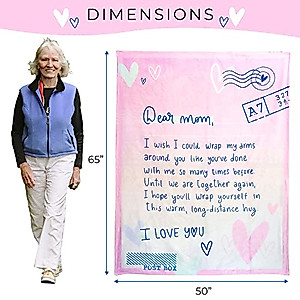 DIMENSIONS
A7
327
Dear mom,
I wish I could wrap my arms
around you like you've done
with me so many times before.
Until we are together again,
I hope you'll wrap yourself in
this warm, long-distance hug.
I LOVE YOU
POST BOX
65"
50"